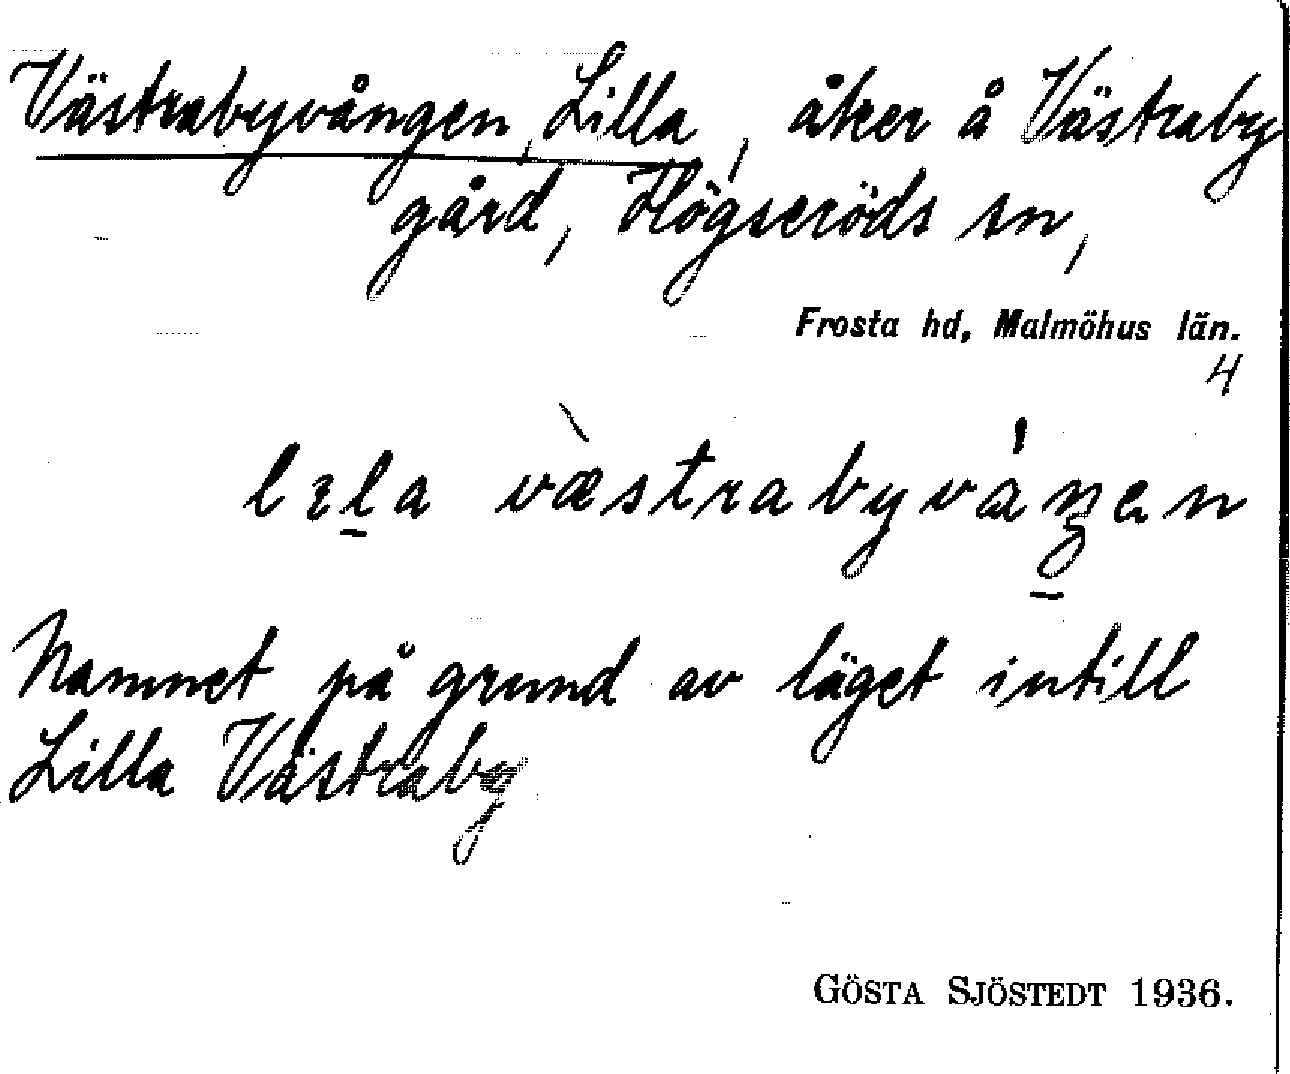 Västrabyvången, Lilla, åker å Västraby
gård, Högseröds sn,
Frosta hd, Malmöhus län.
4
Namnet på grund av läget intill
Lilla Västraby
GÖSTA SJÖSTEDT 1936.